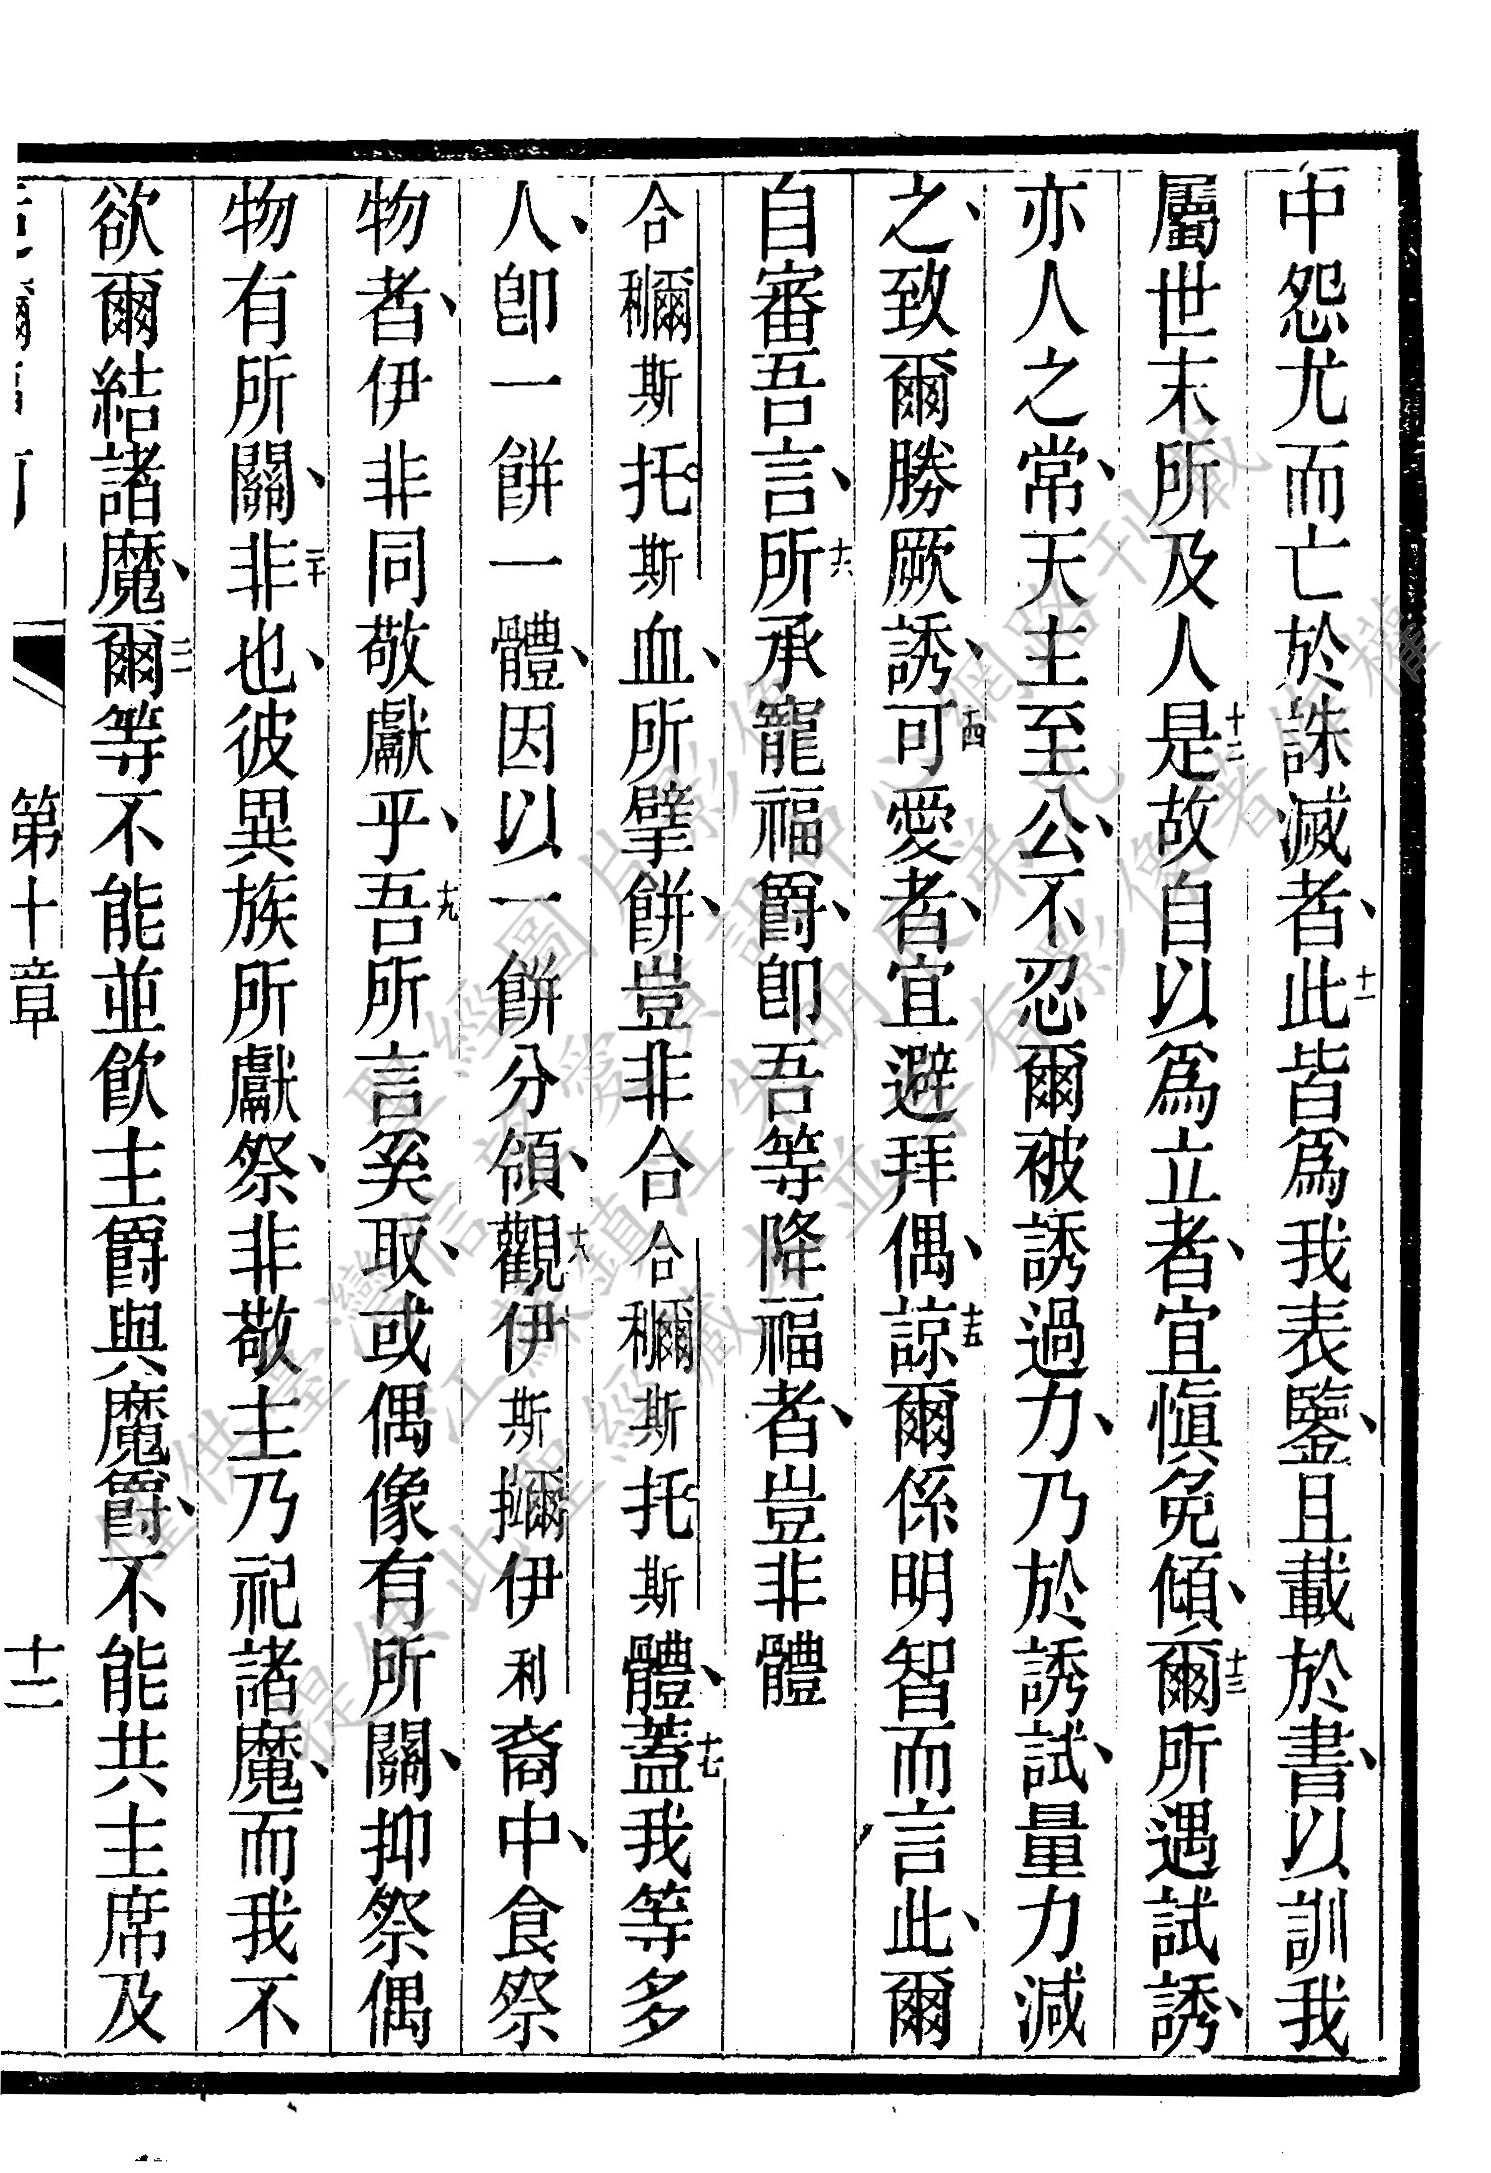 中怨尤而亡於誅滅者、十一此皆為我表鑒、且載於書、以訓我
屬世末所及人十二是故自以為立者、宜慎免傾、十三爾所遇試誘、
亦人之常、天主至公、不忍爾被誘過力、乃於誘試、量力減
之、致爾勝厥誘、十四可愛者、宜避拜偶、十五諒爾係明智而言此、爾
自審吾言、十六所承寵福爵、即吾等降福者、豈非體
合𥣡斯托斯血、所擘餅、豈非合合𥣡斯托斯體、十七蓋我等多
人、即一餅一體、因以一餅分領、十八觀伊斯擟伊利裔中、食祭
物者、伊非同敬獻乎、十九吾所言奚取、或偶像有所關、抑祭偶
物有所關、二十非也、彼異族所獻祭、非敬主乃祀諸魔、而我不
欲爾結諸魔、二一爾等不能並飲主爵與魔爵、不能共主席及
第十章
十二